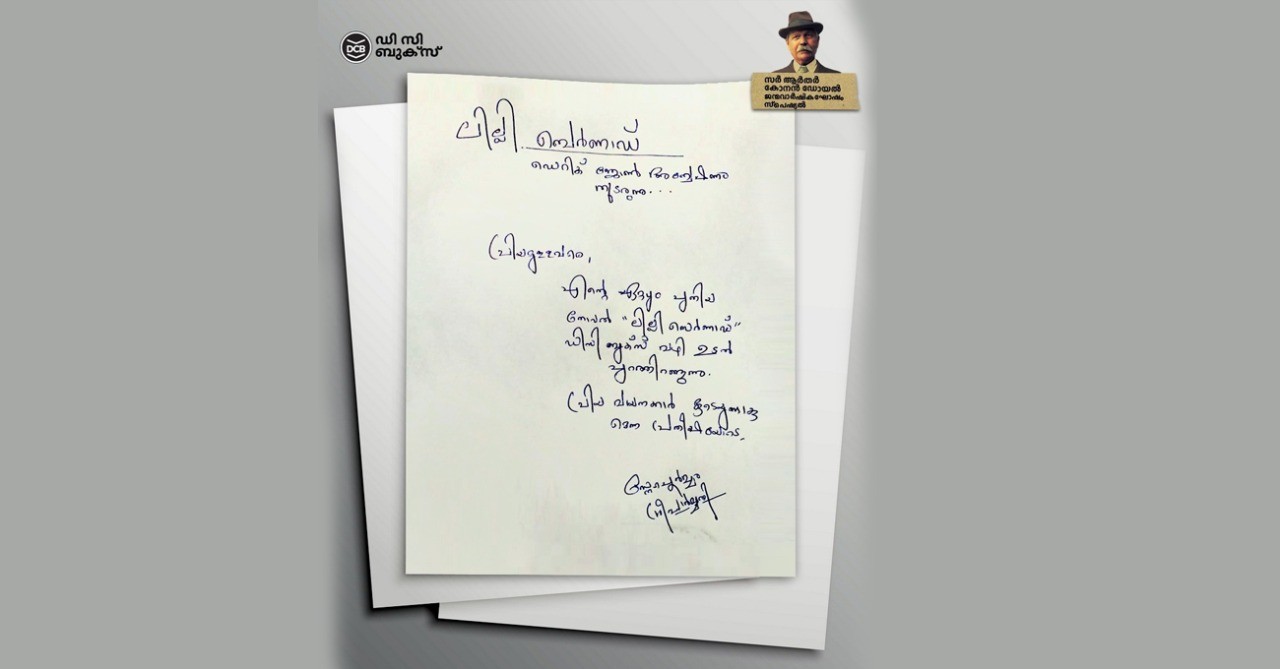 ഡി സി
ബുക്സ്
DCB
സർ ആർതർ
കോനൻ ഡോയൽ
ജന്മവാർഷികഘോഷം
സ്പെഷ്യൽ
ലില്ലി ബെർണാഡ്
ഡെറിക് ജോൺ അന്വേഷണം
തുടരുന്നു...
പ്രിയമുള്ളവരെ,
എന്റെ ഏറ്റവും പുതിയ
നോവൽ "ലില്ലി ബെർണാഡ്"
ഡിസി ബുക്സ് വഴി ഉടൻ
പുറത്തിറങ്ങുന്നു.
പ്രിയ വായനക്കാർ കൂടെയുണ്ടാകു
മെന്ന പ്രതീക്ഷയോടെ,
സ്നേഹപൂർവ്വം